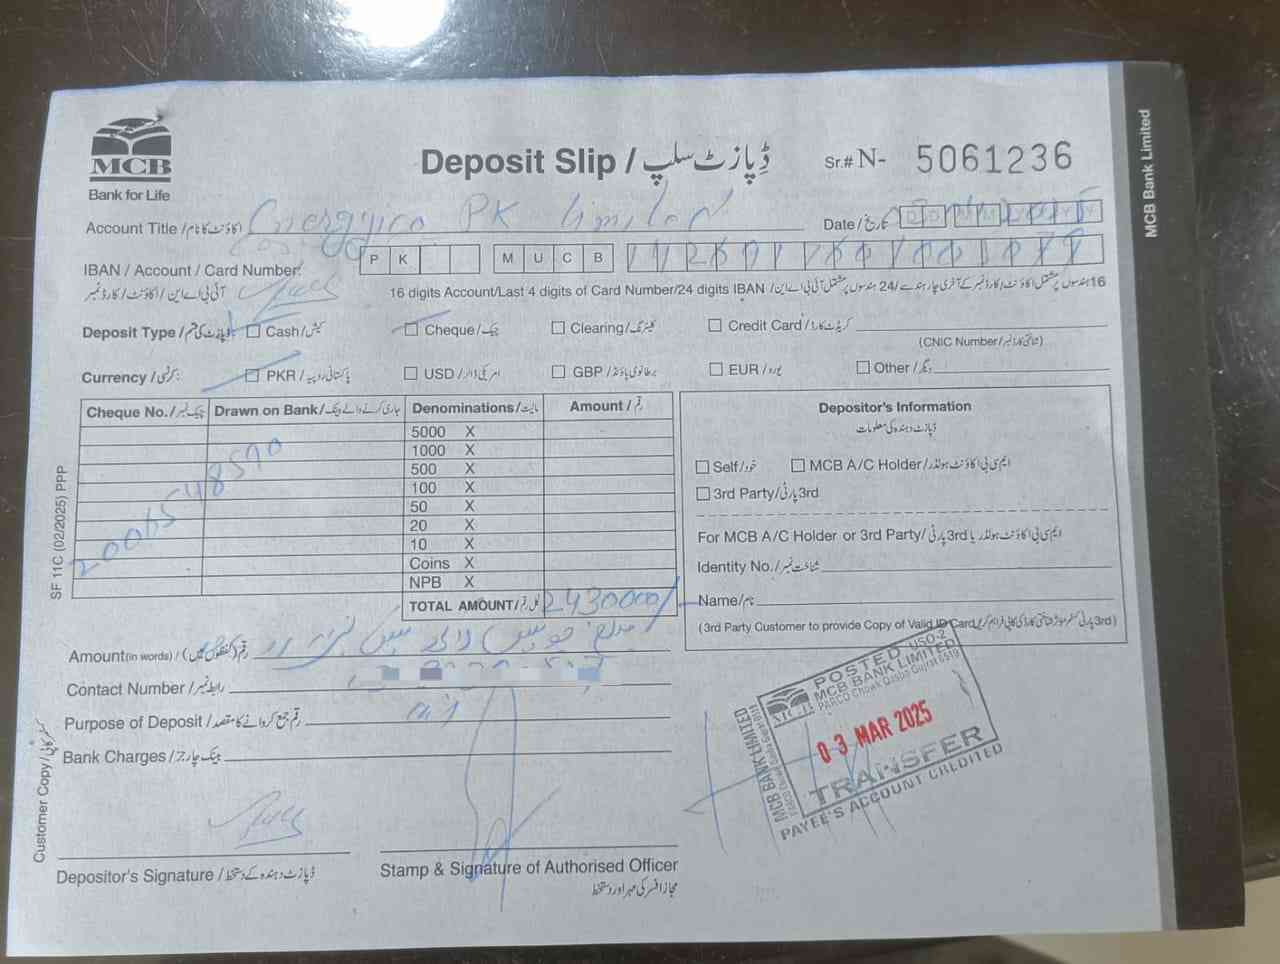 MCB
Bank for Life
Deposit Slip / ڈپازٹ سلپ
Sr.# N- 5061236
Account Title / اکاؤنٹ کا نام Cnergyico PK limited
Date / تاریخ
IBAN / Account / Card Number:
PK MUCB
آئی بی اے این / اکاؤنٹ / کارڈ نمبر
16 digits Account/Last 4 digits of Card Number/24 digits IBAN / 16 ہندسوں پر مشتمل اکاؤنٹ نمبر/کارڈ نمبر کے آخری چار ہندسے/24 ہندسوں پر مشتمل آئی بی اے این
Deposit Type / ڈپازٹ کی قسم: Cash / کیش Cheque / چیک Clearing / کلیئرنگ Credit Card / کریڈٹ کارڈ
(CNIC Number / شناختی کارڈ نمبر)
Currency / کرنسی: PKR / پاکستانی روپیہ USD / امریکی ڈالر GBP / برطانوی پاؤنڈ EUR / یورو Other / دیگر
Cheque No. / چیک نمبر Drawn on Bank / جاری کرنے والے بینک Denominations / مالیت Amount / رقم
5000 X
1000 X
500 X
100 X
50 X
20 X
10 X
Coins X
NPB X
2006548590
TOTAL AMOUNT / کل رقم 2430000/-
Depositor's Information
ڈپازٹ دہندہ کی معلومات
Self / خود MCB A/C Holder / ایم سی بی اکاؤنٹ ہولڈر
3rd Party / 3rd پارٹی
For MCB A/C Holder or 3rd Party / ایم سی بی اکاؤنٹ ہولڈر یا 3rd پارٹی
Identity No. / شناخت نمبر
Name / نام
(3rd Party Customer to provide Copy of Valid ID Card
Amount (in words) / رقم (لفظوں میں)
Contact Number / رابطہ نمبر
Purpose of Deposit / رقم جمع کروانے کا مقصد
Bank Charges / بینک چارجز
Depositor's Signature / ڈپازٹ دہندہ کے دستخط
Stamp & Signature of Authorised Officer
مجاز افسر کی مہر اور دستخط
POSTED USO-2
MCB BANK LIMITED
PARCO Chowk Qasba Gujrat 0519
MCB
03 MAR 2025
TRANSFER
PAYEE'S ACCOUNT CREDITED
MCB BANK LIMITED
SF 11C (02/2025) PPP
Customer Copy / کسٹمر کاپی
MCB Bank Limited